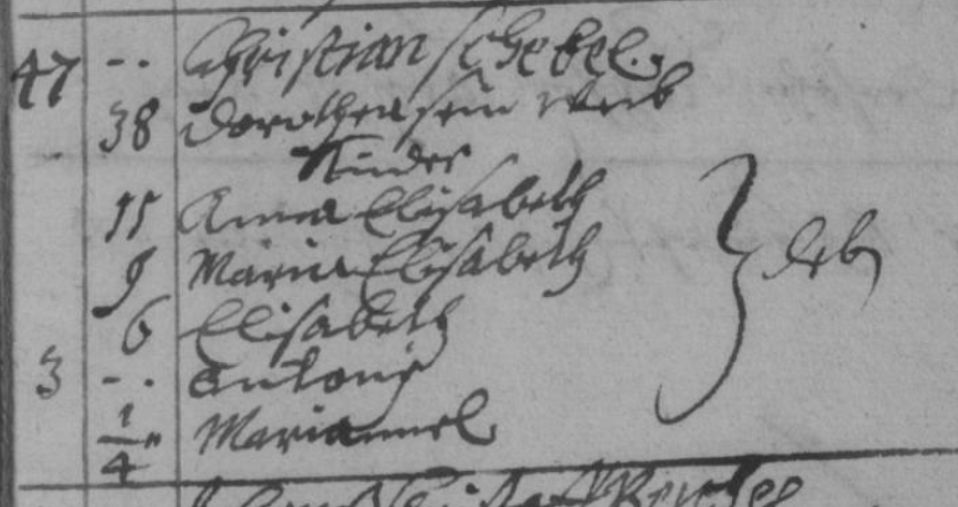 47 -.. Christian Schebel.
38 Dorothea sein Weib
Kinder
11 Anna Elisabeth
9 Maria Elisabeth
6 Elisabeth
3 -.. Antoni
1/4 Mariannel